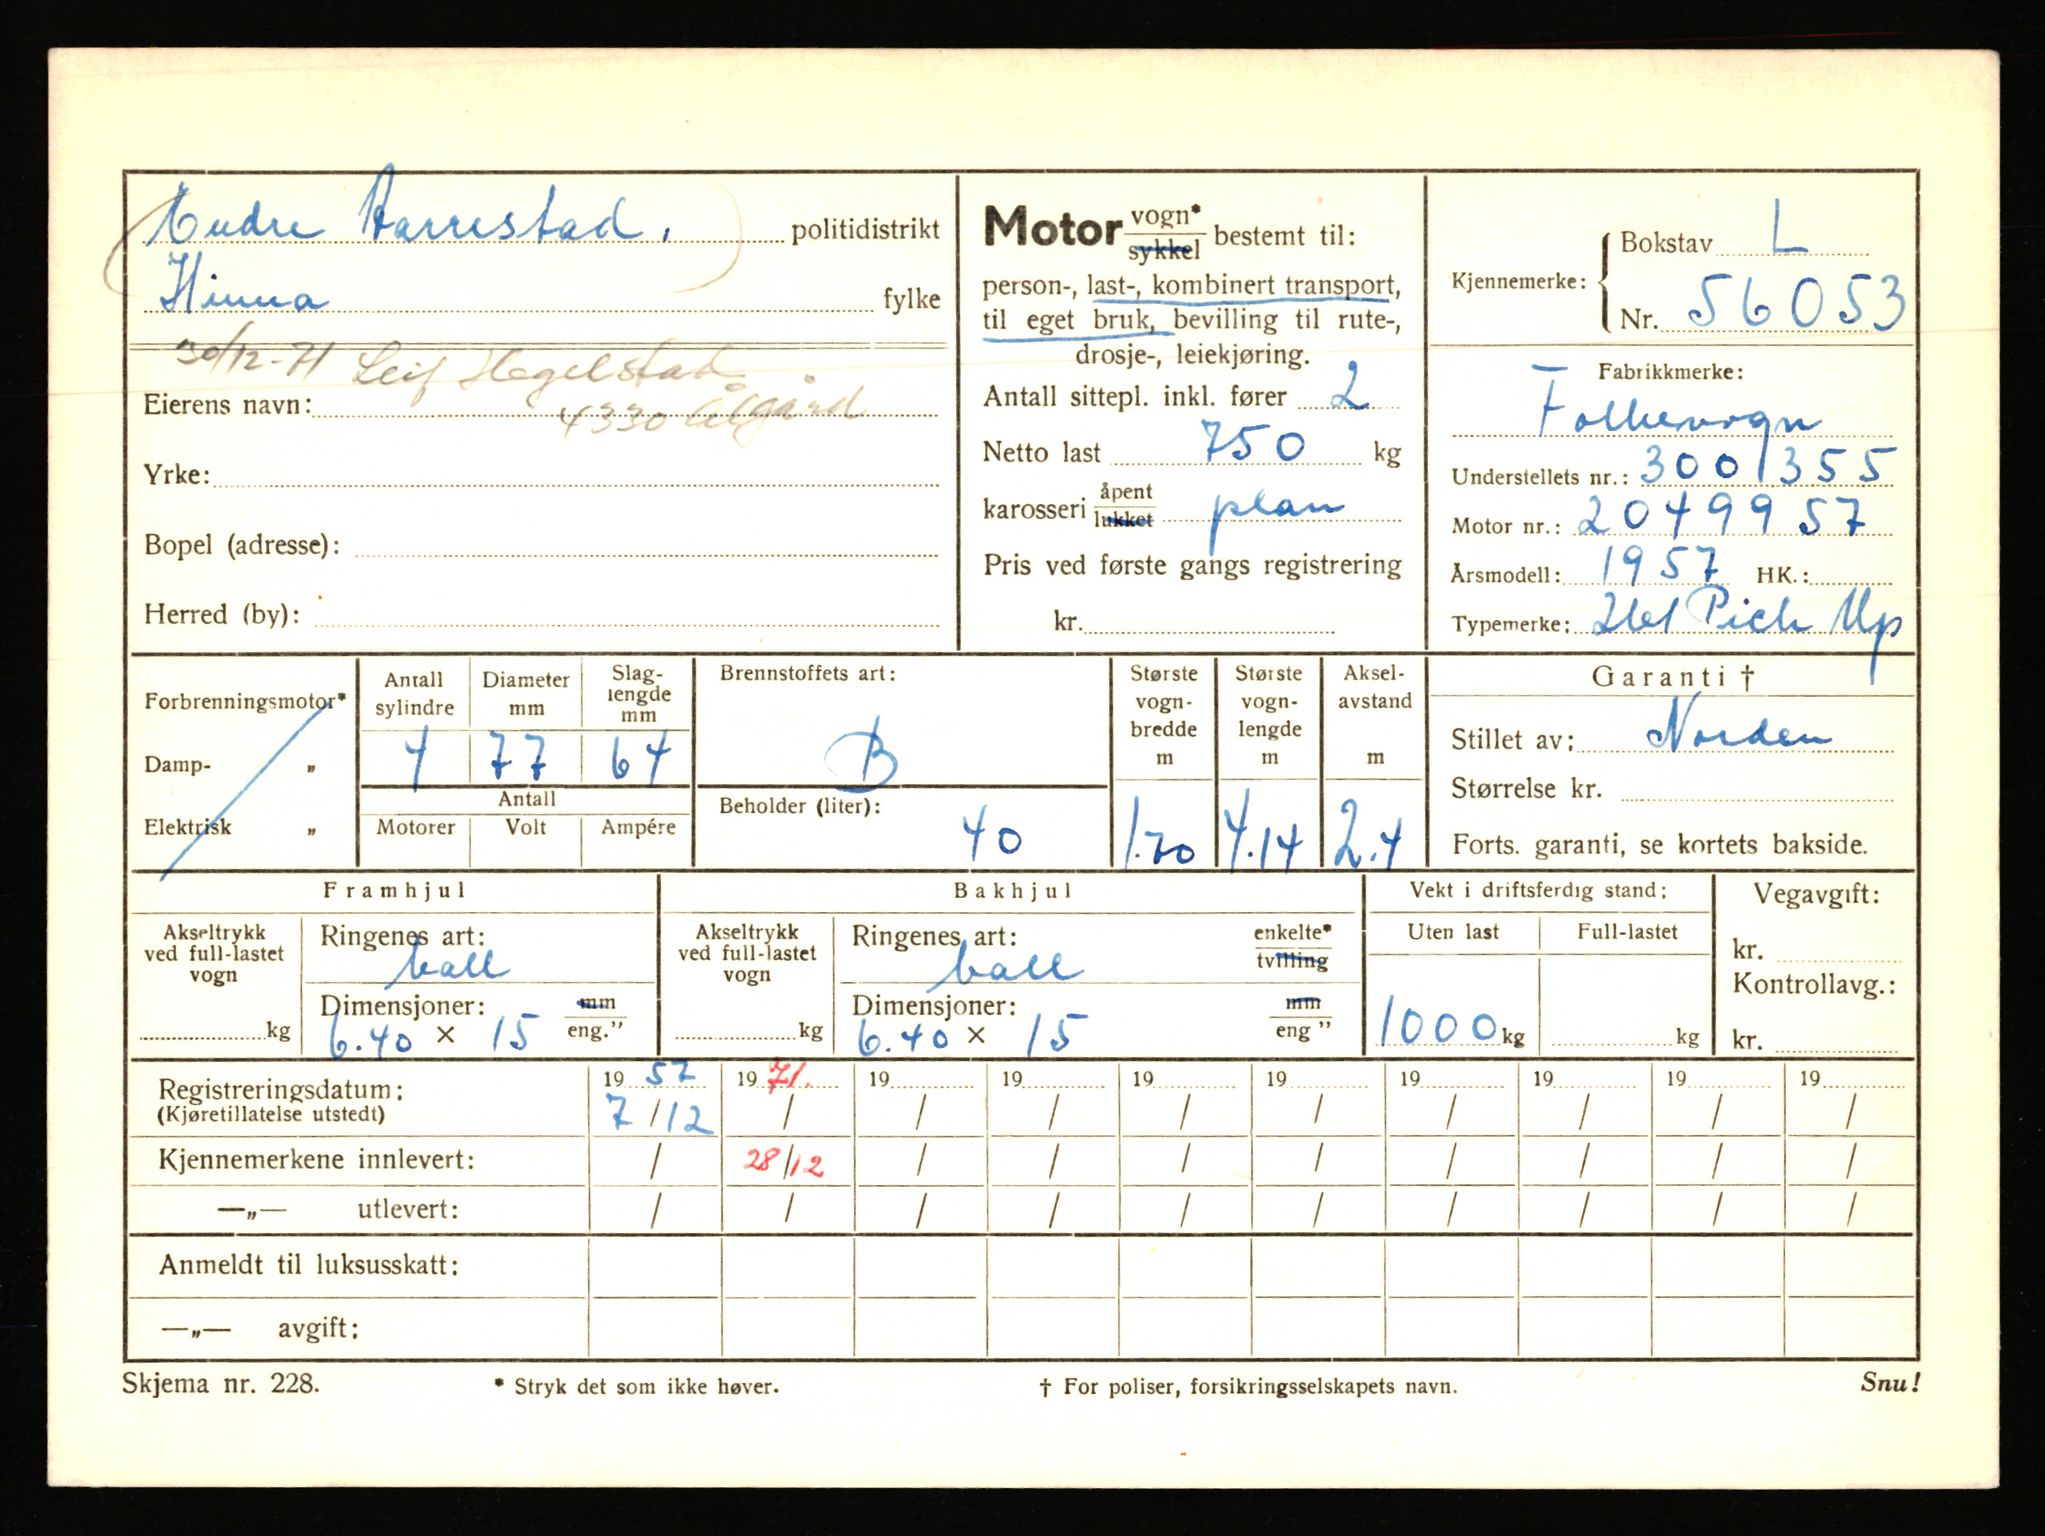 Endre Harrestad. politidistrikt
Hinna fylke
30/12-71 Leif Hegelstad
4330 Ålgård
Eierens navn:
Yrke:
Bopel (adresse):
Herred (by):
Motor vogn* / sykkel bestemt til:
person-, last-, kombinert transport,
til eget bruk, bevilling til rute-,
drosje-, leiekjøring.
Antall sittepl. inkl. fører 2
Netto last 750 kg
karosseri åpent / lukket plan
Pris ved første gangs registrering
kr.
Kjennemerke: Bokstav L
Nr. 56053
Fabrikkmerke:
Folkevogn
Understellets nr.: 3001355
Motor nr.: 2049957
Årsmodell: 1957 HK.:
Typemerke: 261 Pick Up
Forbrenningsmotor*
Damp- „
Elektrisk „
Antall sylindre 4
Diameter mm 77
Slag-lengde mm 64
Antall
Motorer Volt Ampére
Brennstoffets art:
B
Beholder (liter):
40
Største vogn-bredde m 1.70
Største vogn-lengde m 4.14
Aksel-avstand m 2.4
Garanti †
Stillet av: Norden
Størrelse kr.
Forts. garanti, se kortets bakside.
Framhjul
Akseltrykk ved full-lastet vogn
kg
Ringenes art:
ball
Dimensjoner: mm / eng."
6.40 × 15
Bakhjul
Akseltrykk ved full-lastet vogn
kg
Ringenes art: enkelte* / tvilling
ball
Dimensjoner: mm / eng "
6.40 × 15
Vekt i driftsferdig stand:
Uten last Full-lastet
1000 kg kg
Vegavgift:
kr.
Kontrollavg.:
kr.
Registreringsdatum: 19 57 19 71. 19 19 19 19 19 19 19 19
(Kjøretillatelse utstedt) 7/12 / / / / / / / / /
Kjennemerkene innlevert: / 28/12 / / / / / / / /
—„— utlevert: / / / / / / / / / /
Anmeldt til luksusskatt:
—„— avgift:
Skjema nr. 228. * Stryk det som ikke høver. † For poliser, forsikringsselskapets navn. Snu!